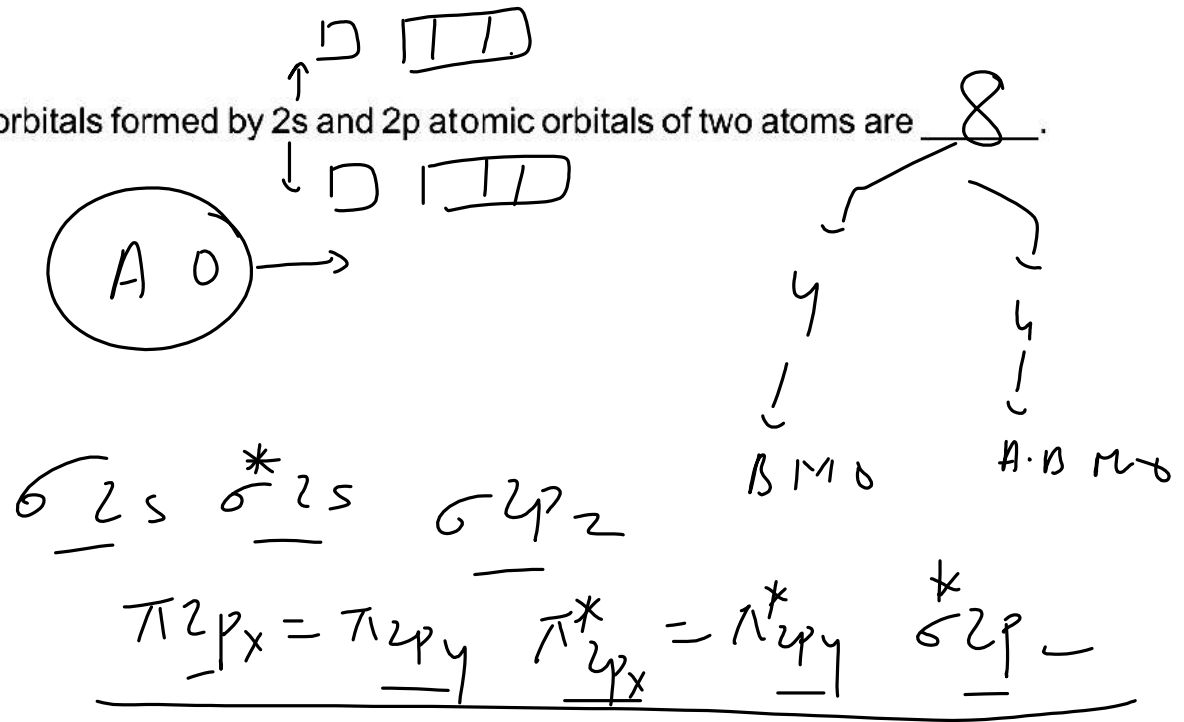 orbitals formed by 2s and 2p atomic orbitals of two atoms are 8.
A O
4 4
BMO A.B MO
σ2s σ*2s σ2pz
π2px = π2py π*2px = π*2py σ*2p